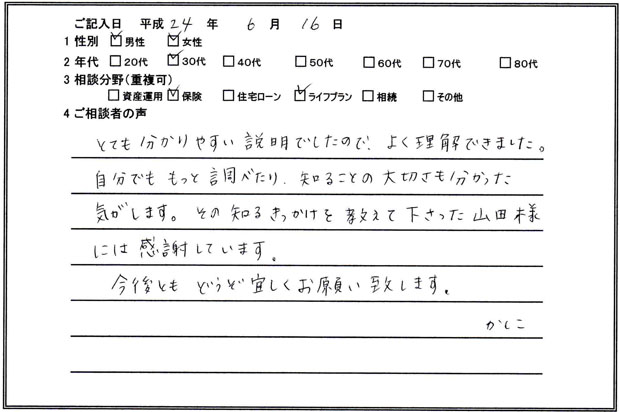 ご記入日 平成 24 年 6 月 16 日
1 性別 ☑男性 ☑女性
2 年代 □20代 ☑30代 □40代 □50代 □60代 □70代 □80代
3 相談分野(重複可)
□資産運用 ☑保険 □住宅ローン ☑ライフプラン □相続 □その他
4 ご相談者の声
とても分かりやすい説明でしたので、よく理解できました。
自分でももっと調べたり、知ることの大切さも分かった
気がします。その知るきっかけを教えて下さった山田様
には感謝しています。
今後ともどうぞ宜しくお願い致します。
かしこ